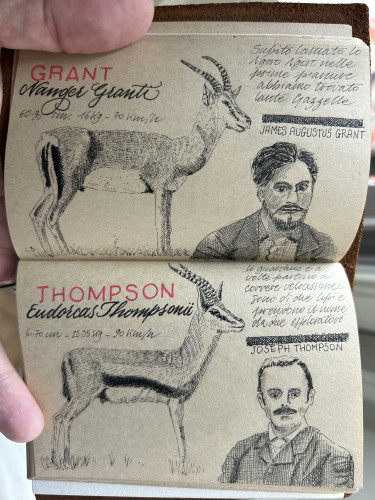 GRANT
Nanger Granti
60-90 cm - 16 Kg - 70 Km/h
Subito lasciato lo
Ngoro Ngoro nelle
prime pianure
abbiamo trovato
tante Gazzelle
JAMES AUGUSTUS GRANT
THOMPSON
Eudorcas Thompsonii
70 cm - 15-35 Kg - 90 Km/h
guardano e a
volte partono a
correre velocissime.
sono di due tipi e
prendono il nome
da due esploratori
JOSEPH THOMPSON